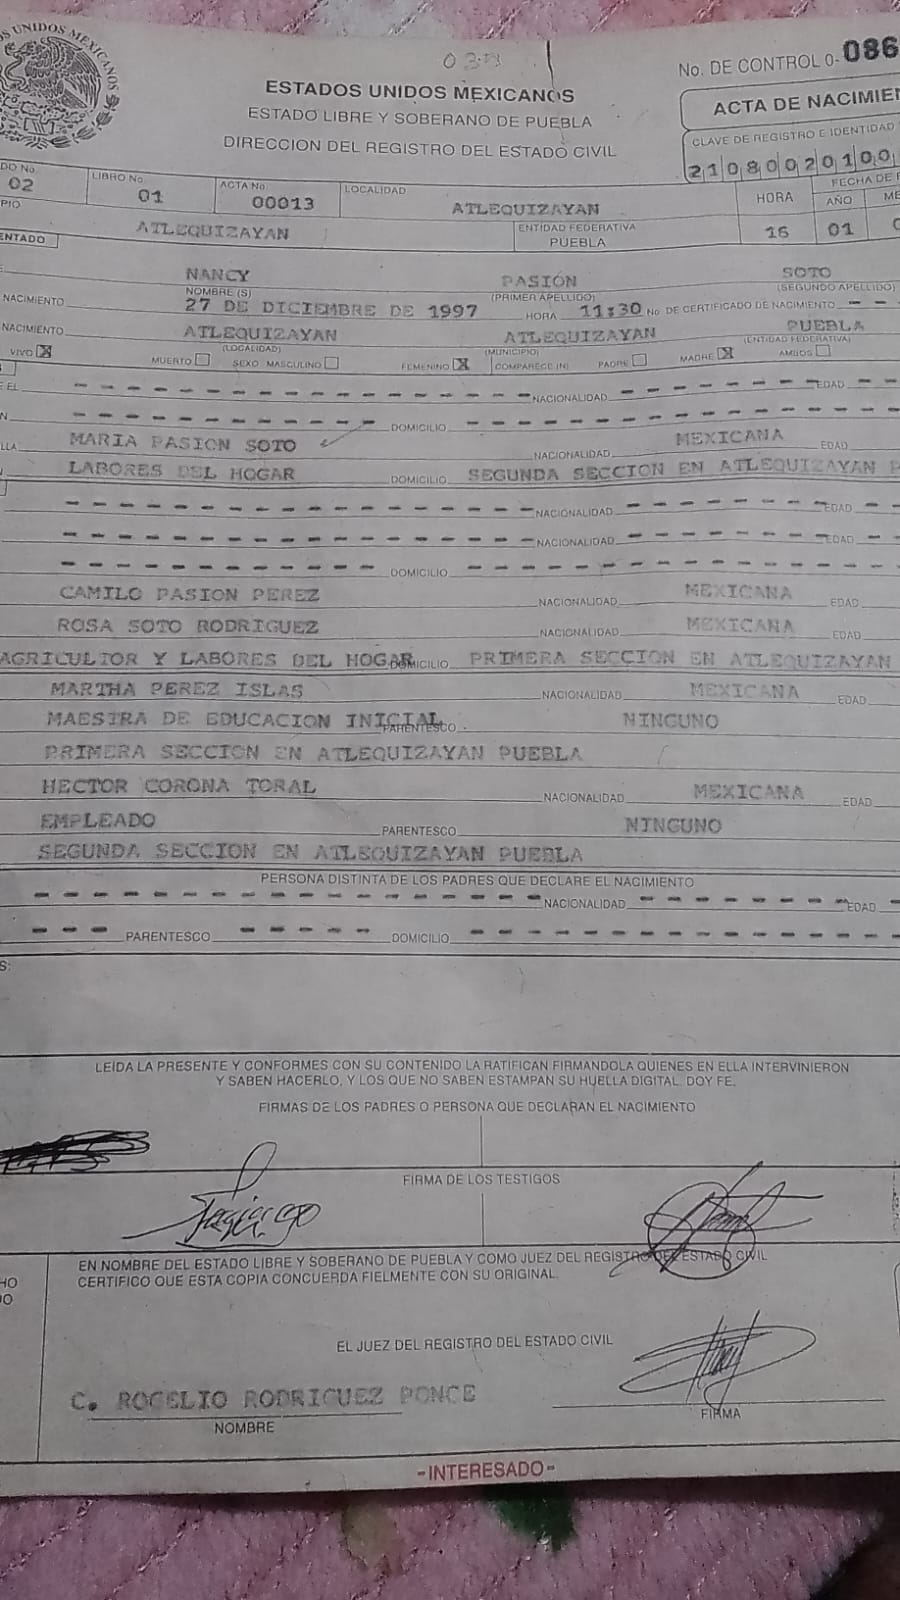 OS UNIDOS MEXICANOS
No. DE CONTROL 0-086
ESTADOS UNIDOS MEXICANOS
ESTADO LIBRE Y SOBERANO DE PUEBLA
DIRECCION DEL REGISTRO DEL ESTADO CIVIL
ACTA DE NACIMIEN
CLAVE DE REGISTRO E IDENTIDAD
21080020100
DO No. 02 LIBRO No 01 ACTA No. 00013 LOCALIDAD ATLEQUIZAYAN HORA FECHA DE
AÑO ME
PIO ATLEQUIZAYAN ENTIDAD FEDERATIVA PUEBLA 16 01
ENTADO
NANCY PASION SOTO
NOMBRE (S) (PRIMER APELLIDO) (SEGUNDO APELLIDO)
NACIMIENTO 27 DE DICIEMBRE DE 1997 HORA 11:30 No DE CERTIFICADO DE NACIMIENTO - -
NACIMIENTO ATLEQUIZAYAN ATLEQUIZAYAN PUEBLA
(LOCALIDAD) (MUNICIPIO) (ENTIDAD FEDERATIVA)
VIVO X MUERTO SEXO: MASCULINO FEMENINO X COMPARECE (N) PADRE MADRE X AMBOS
E EL NACIONALIDAD EDAD
N DOMICILIO
LLA MARIA PASION SOTO NACIONALIDAD MEXICANA EDAD
LABORES DEL HOGAR DOMICILIO SEGUNDA SECCION EN ATLEQUIZAYAN P
NACIONALIDAD EDAD
NACIONALIDAD EDAD
DOMICILIO
CAMILO PASION PEREZ NACIONALIDAD MEXICANA EDAD
ROSA SOTO RODRIGUEZ NACIONALIDAD MEXICANA EDAD
AGRICULTOR Y LABORES DEL HOGAR DOMICILIO PRIMERA SECCION EN ATLEQUIZAYAN
MARTHA PEREZ ISLAS NACIONALIDAD MEXICANA EDAD
MAESTRA DE EDUCACION INICIAL PARENTESCO NINGUNO
PRIMERA SECCION EN ATLEQUIZAYAN PUEBLA
HECTOR CORONA TORAL NACIONALIDAD MEXICANA EDAD
EMPLEADO PARENTESCO NINGUNO
SEGUNDA SECCION EN ATLEQUIZAYAN PUEBLA
PERSONA DISTINTA DE LOS PADRES QUE DECLARE EL NACIMIENTO
NACIONALIDAD EDAD
PARENTESCO DOMICILIO
S:
LEIDA LA PRESENTE Y CONFORMES CON SU CONTENIDO LA RATIFICAN FIRMANDOLA QUIENES EN ELLA INTERVINIERON
Y SABEN HACERLO, Y LOS QUE NO SABEN ESTAMPAN SU HUELLA DIGITAL. DOY FE.
FIRMAS DE LOS PADRES O PERSONA QUE DECLARAN EL NACIMIENTO
FIRMA DE LOS TESTIGOS
EN NOMBRE DEL ESTADO LIBRE Y SOBERANO DE PUEBLA Y COMO JUEZ DEL REGISTRO DEL ESTADO CIVIL
HO CERTIFICO QUE ESTA COPIA CONCUERDA FIELMENTE CON SU ORIGINAL.
DO
EL JUEZ DEL REGISTRO DEL ESTADO CIVIL
C. ROGELIO RODRIGUEZ PONCE
NOMBRE FIRMA
-INTERESADO-